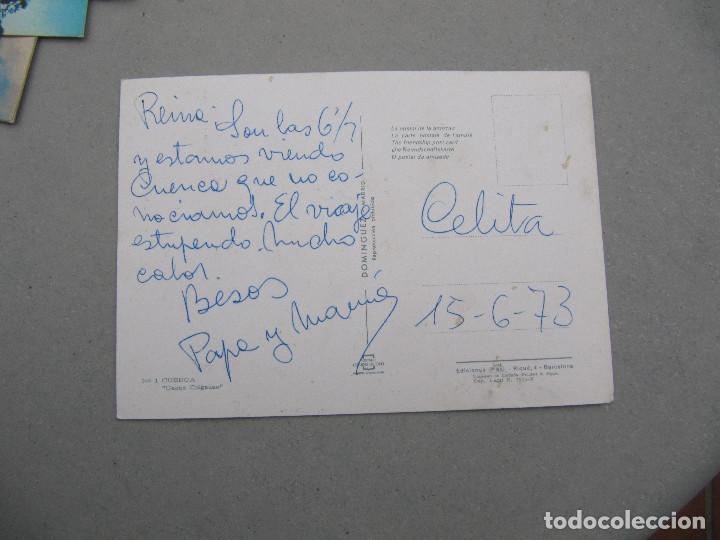 Reina: Son las 6 1/2
y estamos viendo
Cuenca que no co-
nociamos. El viaje
estupendo. Mucho
calor.
Besos
Papa y Mamá
Nº 1 CUENCA
"Casas Colgadas"
DOMINGUEZ
MADRID
Reproducción prohibida
La postal de la amistad
La carte postale de l'amitié
The friendship post card
Die Freundschaftskarte
O postal da amizade
Celita
15-6-73
Ediciones
Barcelona
todocoleccion
todocoleccion.net